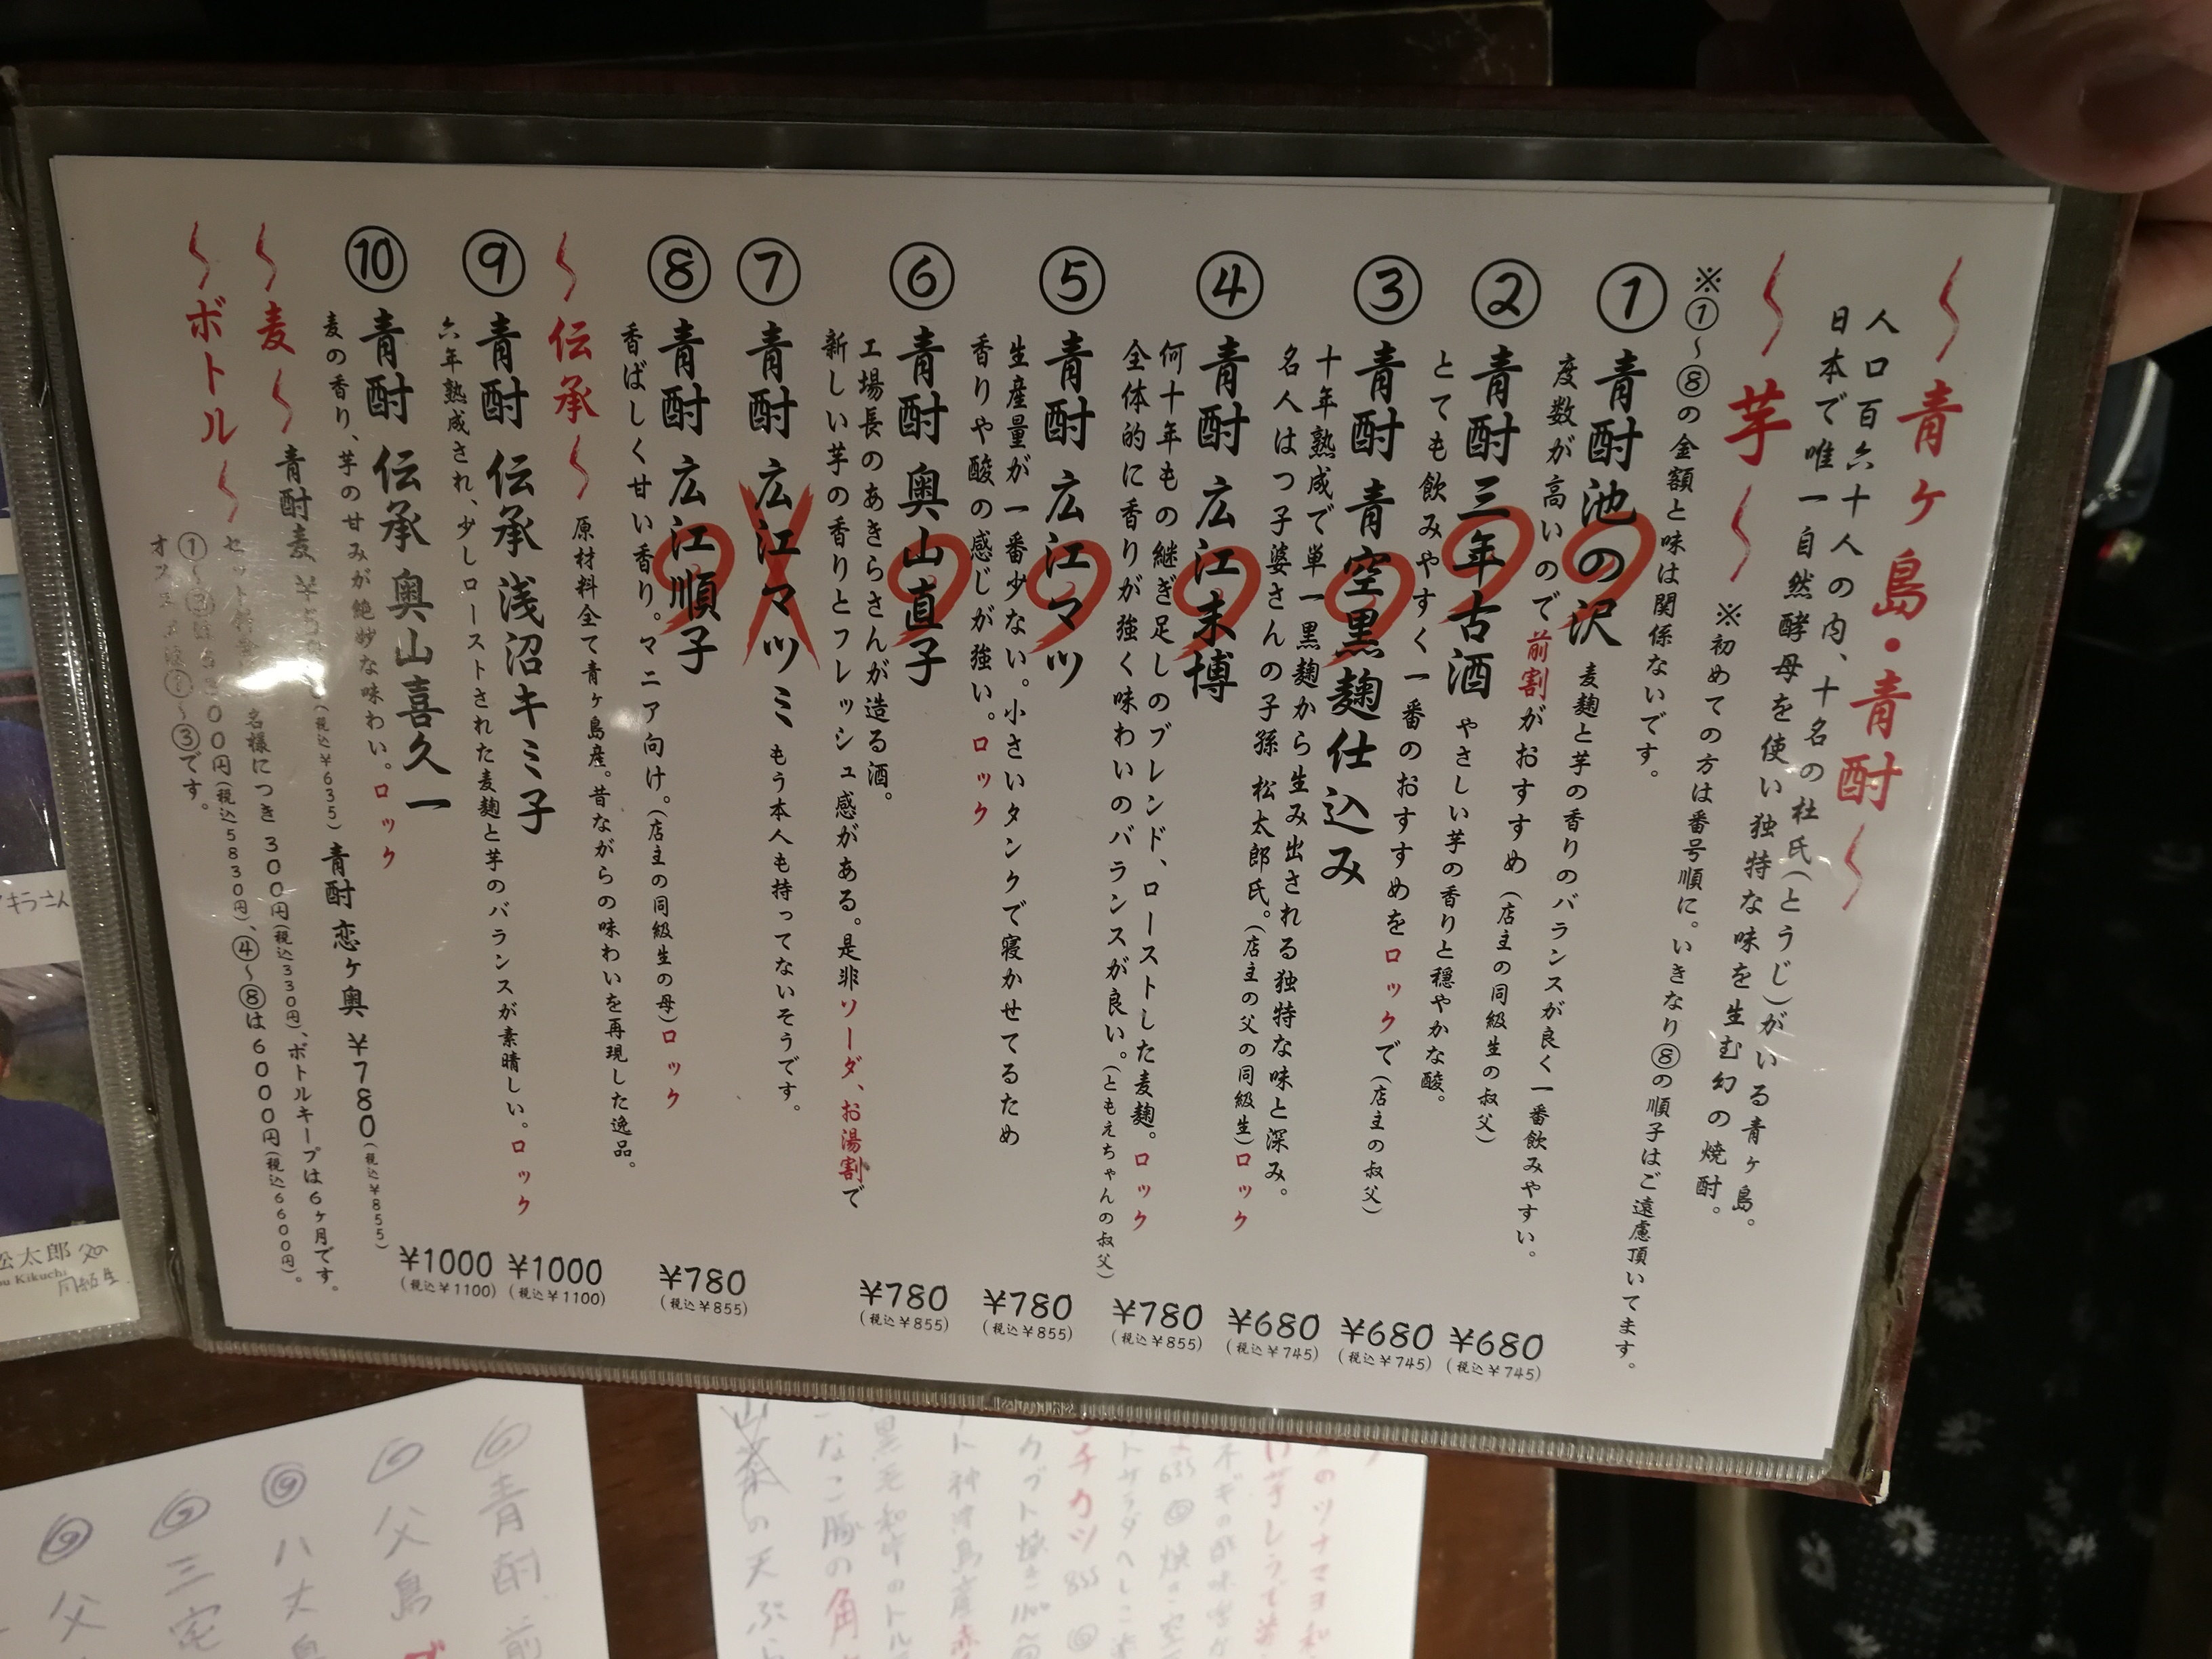 〜青ヶ島・青酎〜
人口百六十人の内、十名の杜氏(とうじ)がいる青ヶ島。
日本で唯一自然酵母を使い独特な味を生む幻の焼酎。
〜芋〜 ※初めての方は番号順に。いきなり⑧の順子はご遠慮頂いてます。
※①〜⑧の金額と味は関係ないです。
① 青酎 池の沢 麦麹と芋の香りのバランスが良く一番飲みやすい。
度数が高いので前割がおすすめ(店主の同級生の叔父) ¥680(税込¥745)
② 青酎 三年古酒 やさしい芋の香りと穏やかな酸。
とても飲みやすく一番のおすすめをロックで(店主の叔父) ¥680(税込¥745)
③ 青酎 青空黒麹仕込み
十年熟成で単一黒麹から生み出される独特な味と深み。
名人はつ子婆さんの子孫 松太郎氏。(店主の父の同級生)ロック ¥680(税込¥745)
④ 青酎 広江末博
何十年もの継ぎ足しのブレンド、ローストした麦麹。ロック
全体的に香りが強く味わいのバランスが良い。(ともえちゃんの叔父) ¥780(税込¥855)
⑤ 青酎 広江マツ
生産量が一番少ない。小さいタンクで寝かせてるため
香りや酸の感じが強い。ロック ¥780(税込¥855)
⑥ 青酎 奥山直子
工場長のあきらさんが造る酒。
新しい芋の香りとフレッシュ感がある。是非ソーダ、お湯割で ¥780(税込¥855)
⑦ 青酎 広江マツミ もう本人も持ってないそうです。
⑧ 青酎 広江順子
香ばしく甘い香り。マニア向け。(店主の同級生の母)ロック ¥780(税込¥855)
〜伝承〜 原材料全て青ヶ島産。昔ながらの味わいを再現した逸品。
⑨ 青酎 伝承 浅沼キミ子
六年熟成され、少しローストされた麦麹と芋のバランスが素晴しい。ロック ¥1000(税込¥1100)
⑩ 青酎 伝承 奥山喜久一
麦の香り、芋の甘みが絶妙な味わい。ロック ¥1000(税込¥1100)
〜麦〜 青酎麦 (税込¥635) 青酎 恋ヶ奥 ¥780(税込¥855)
〜ボトル〜 名様につき300円(税込330円)、ボトルキープは6ヶ月です。
00円(税込5830円)、④〜⑧は6000円(税込6600円)。
〜③です。
キラさん
松太郎 父の
Kikuchi 同級生
青酎 前
父島
八丈島
三宅
父